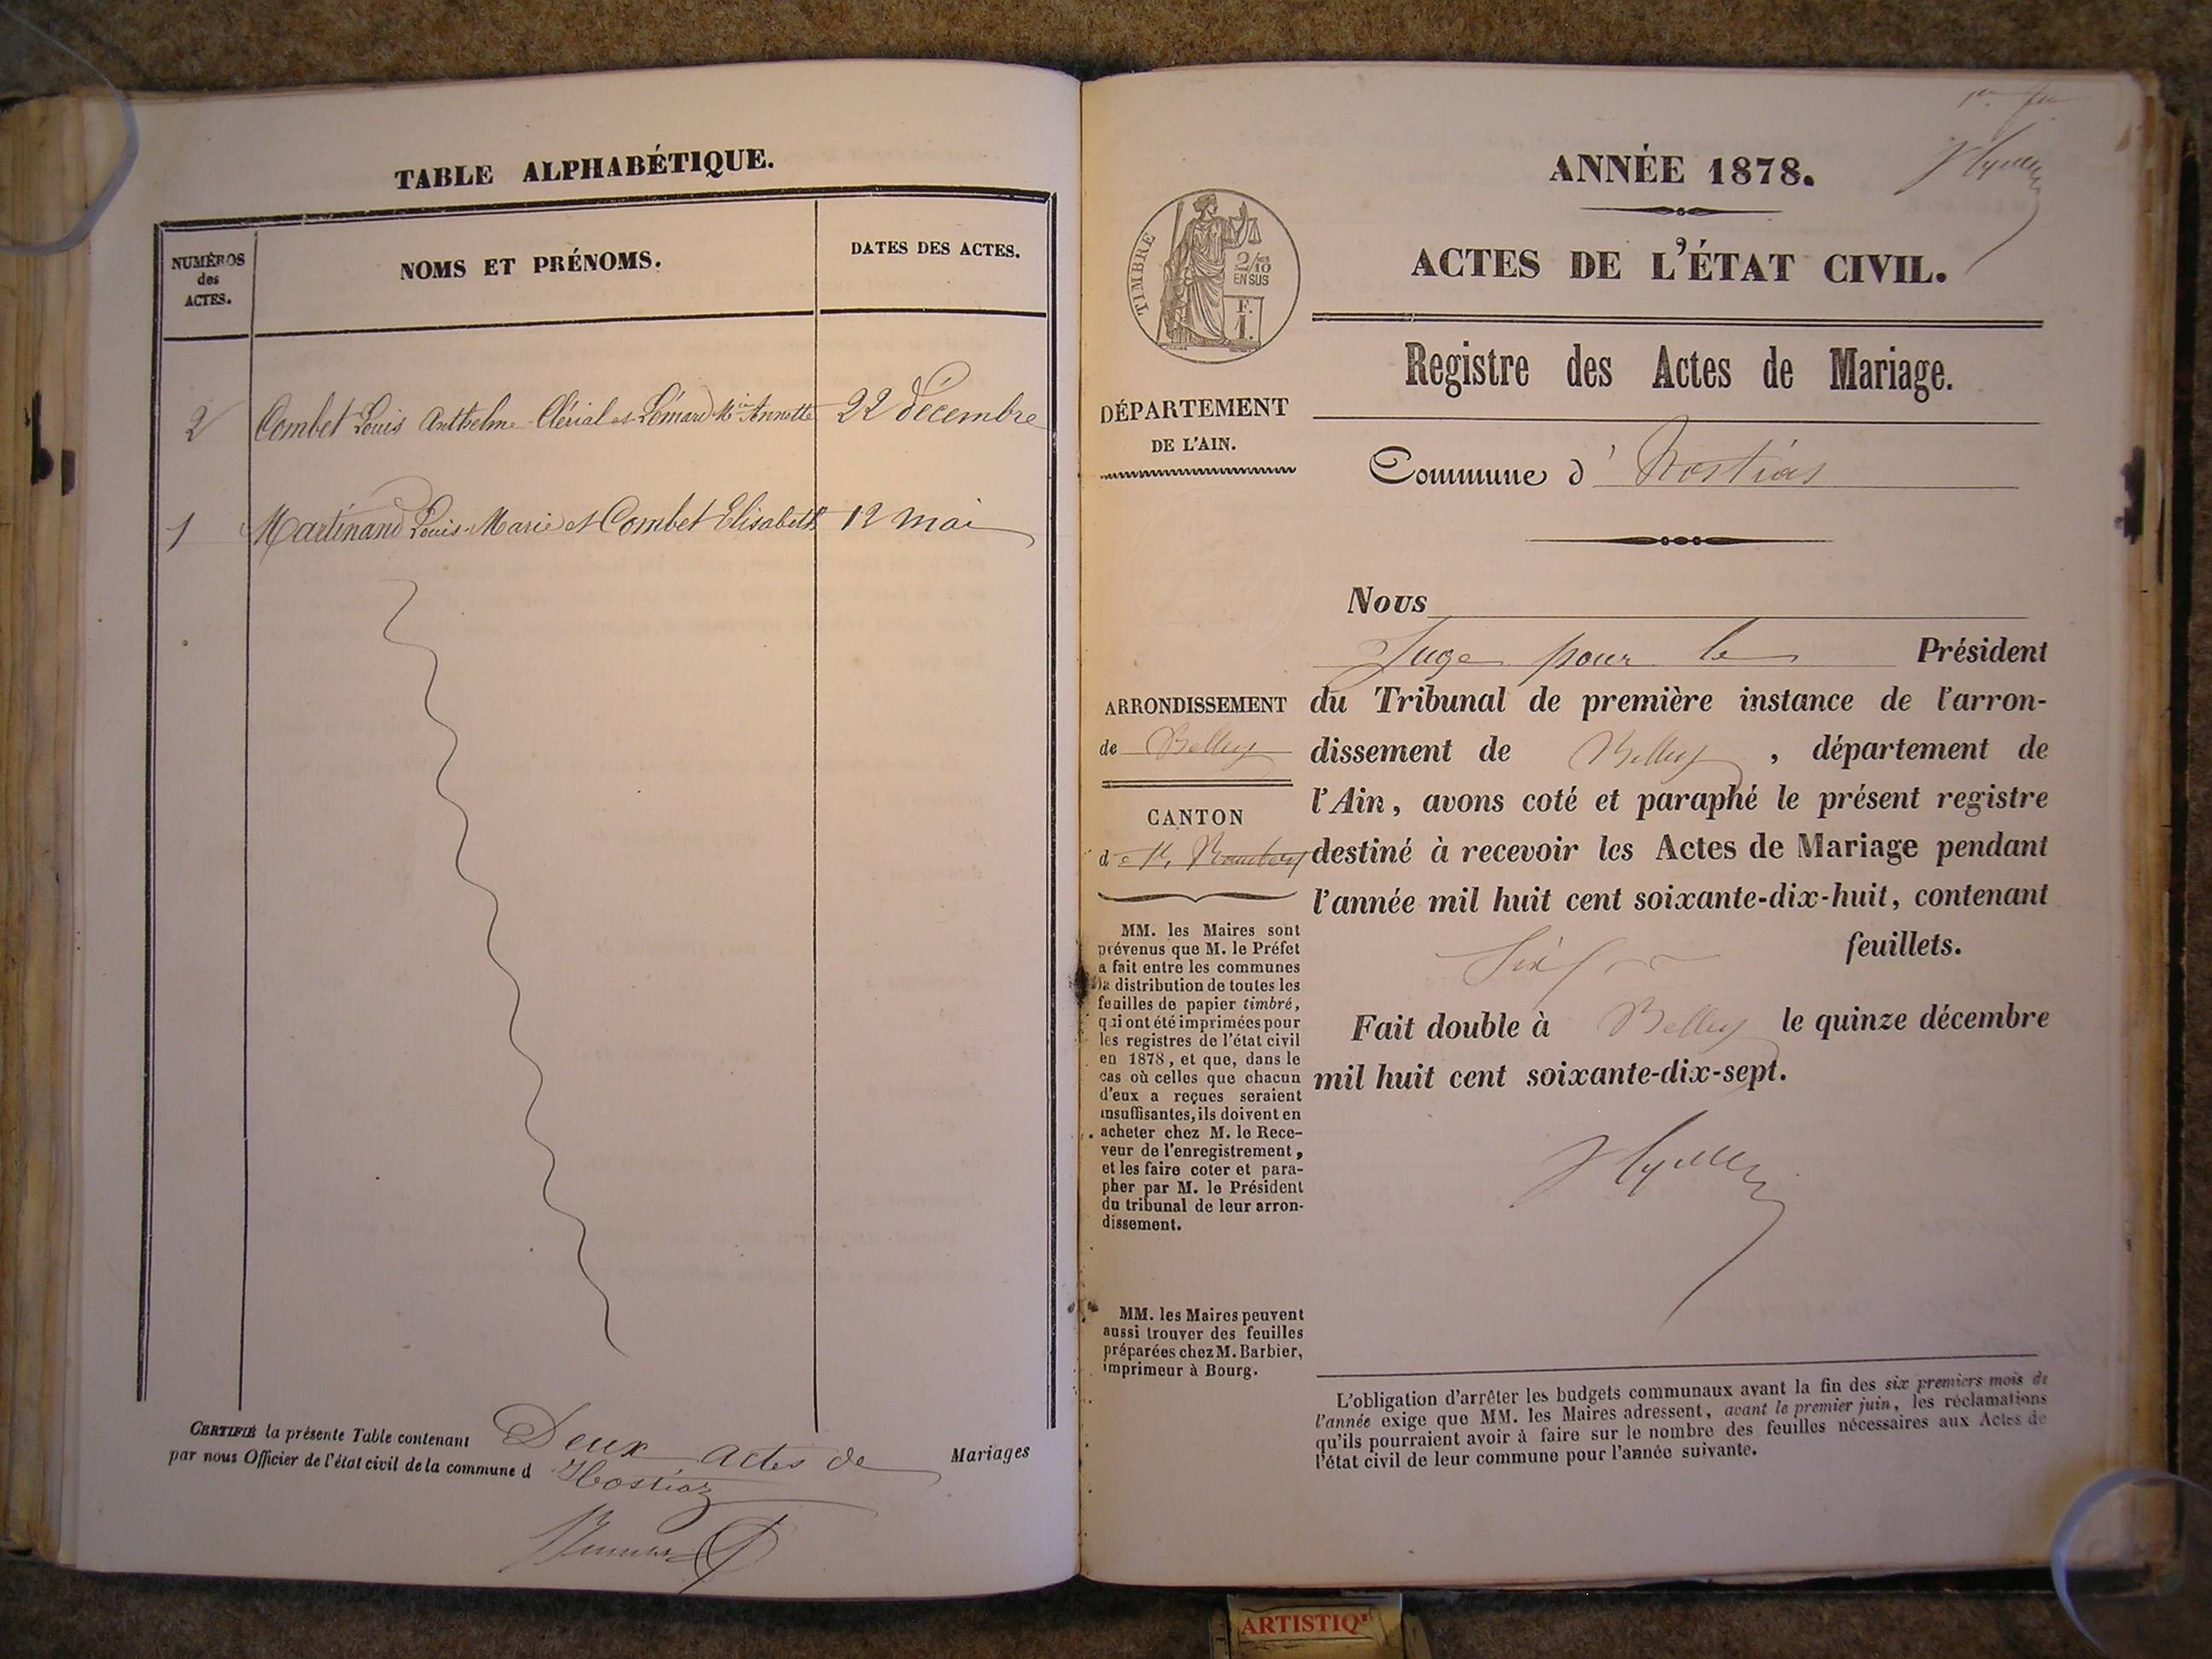 TABLE ALPHABÉTIQUE.
NUMÉROS
des
ACTES.
NOMS ET PRÉNOMS.
DATES DES ACTES.
2 Combet Louis Anthelme Clérial et Lémard Mie Annette 22 décembre
1 Martinand Louis-Marie et Combet Elisabeth 12 mai
CERTIFIÉ la présente Table contenant Deux actes de Mariages
par nous Officier de l'état civil de la commune d Hostiaz
ANNÉE 1878.
ACTES DE L'ÉTAT CIVIL.
TIMBRE
2/10
EN SUS
F.
1.
Registre des Actes de Mariage.
DÉPARTEMENT
DE L'AIN.
Commune d' Hostias
Nous
Juge pour le Président
du Tribunal de première instance de l'arron-
dissement de Belley, département de
l'Ain, avons coté et paraphé le présent registre
destiné à recevoir les Actes de Mariage pendant
l'année mil huit cent soixante-dix-huit, contenant
Six feuillets.
Fait double à Belley le quinze décembre
mil huit cent soixante-dix-sept.
ARRONDISSEMENT
de Belley
CANTON
de St Rambert
MM. les Maires sont
prévenus que M. le Préfet
a fait entre les communes
la distribution de toutes les
feuilles de papier timbré,
qui ont été imprimées pour
les registres de l'état civil
en 1878, et que, dans le
cas où celles que chacun
d'eux a reçues seraient
insuffisantes, ils doivent en
acheter chez M. le Rece-
veur de l'enregistrement,
et les faire coter et para-
pher par M. le Président
du tribunal de leur arron-
dissement.
MM. les Maires peuvent
aussi trouver des feuilles
préparées chez M. Barbier,
imprimeur à Bourg.
L'obligation d'arrêter les budgets communaux avant la fin des six premiers mois de
l'année exige que MM. les Maires adressent, avant le premier juin, les réclamations
qu'ils pourraient avoir à faire sur le nombre des feuilles nécessaires aux Actes de
l'état civil de leur commune pour l'année suivante.
ARTISTIQ